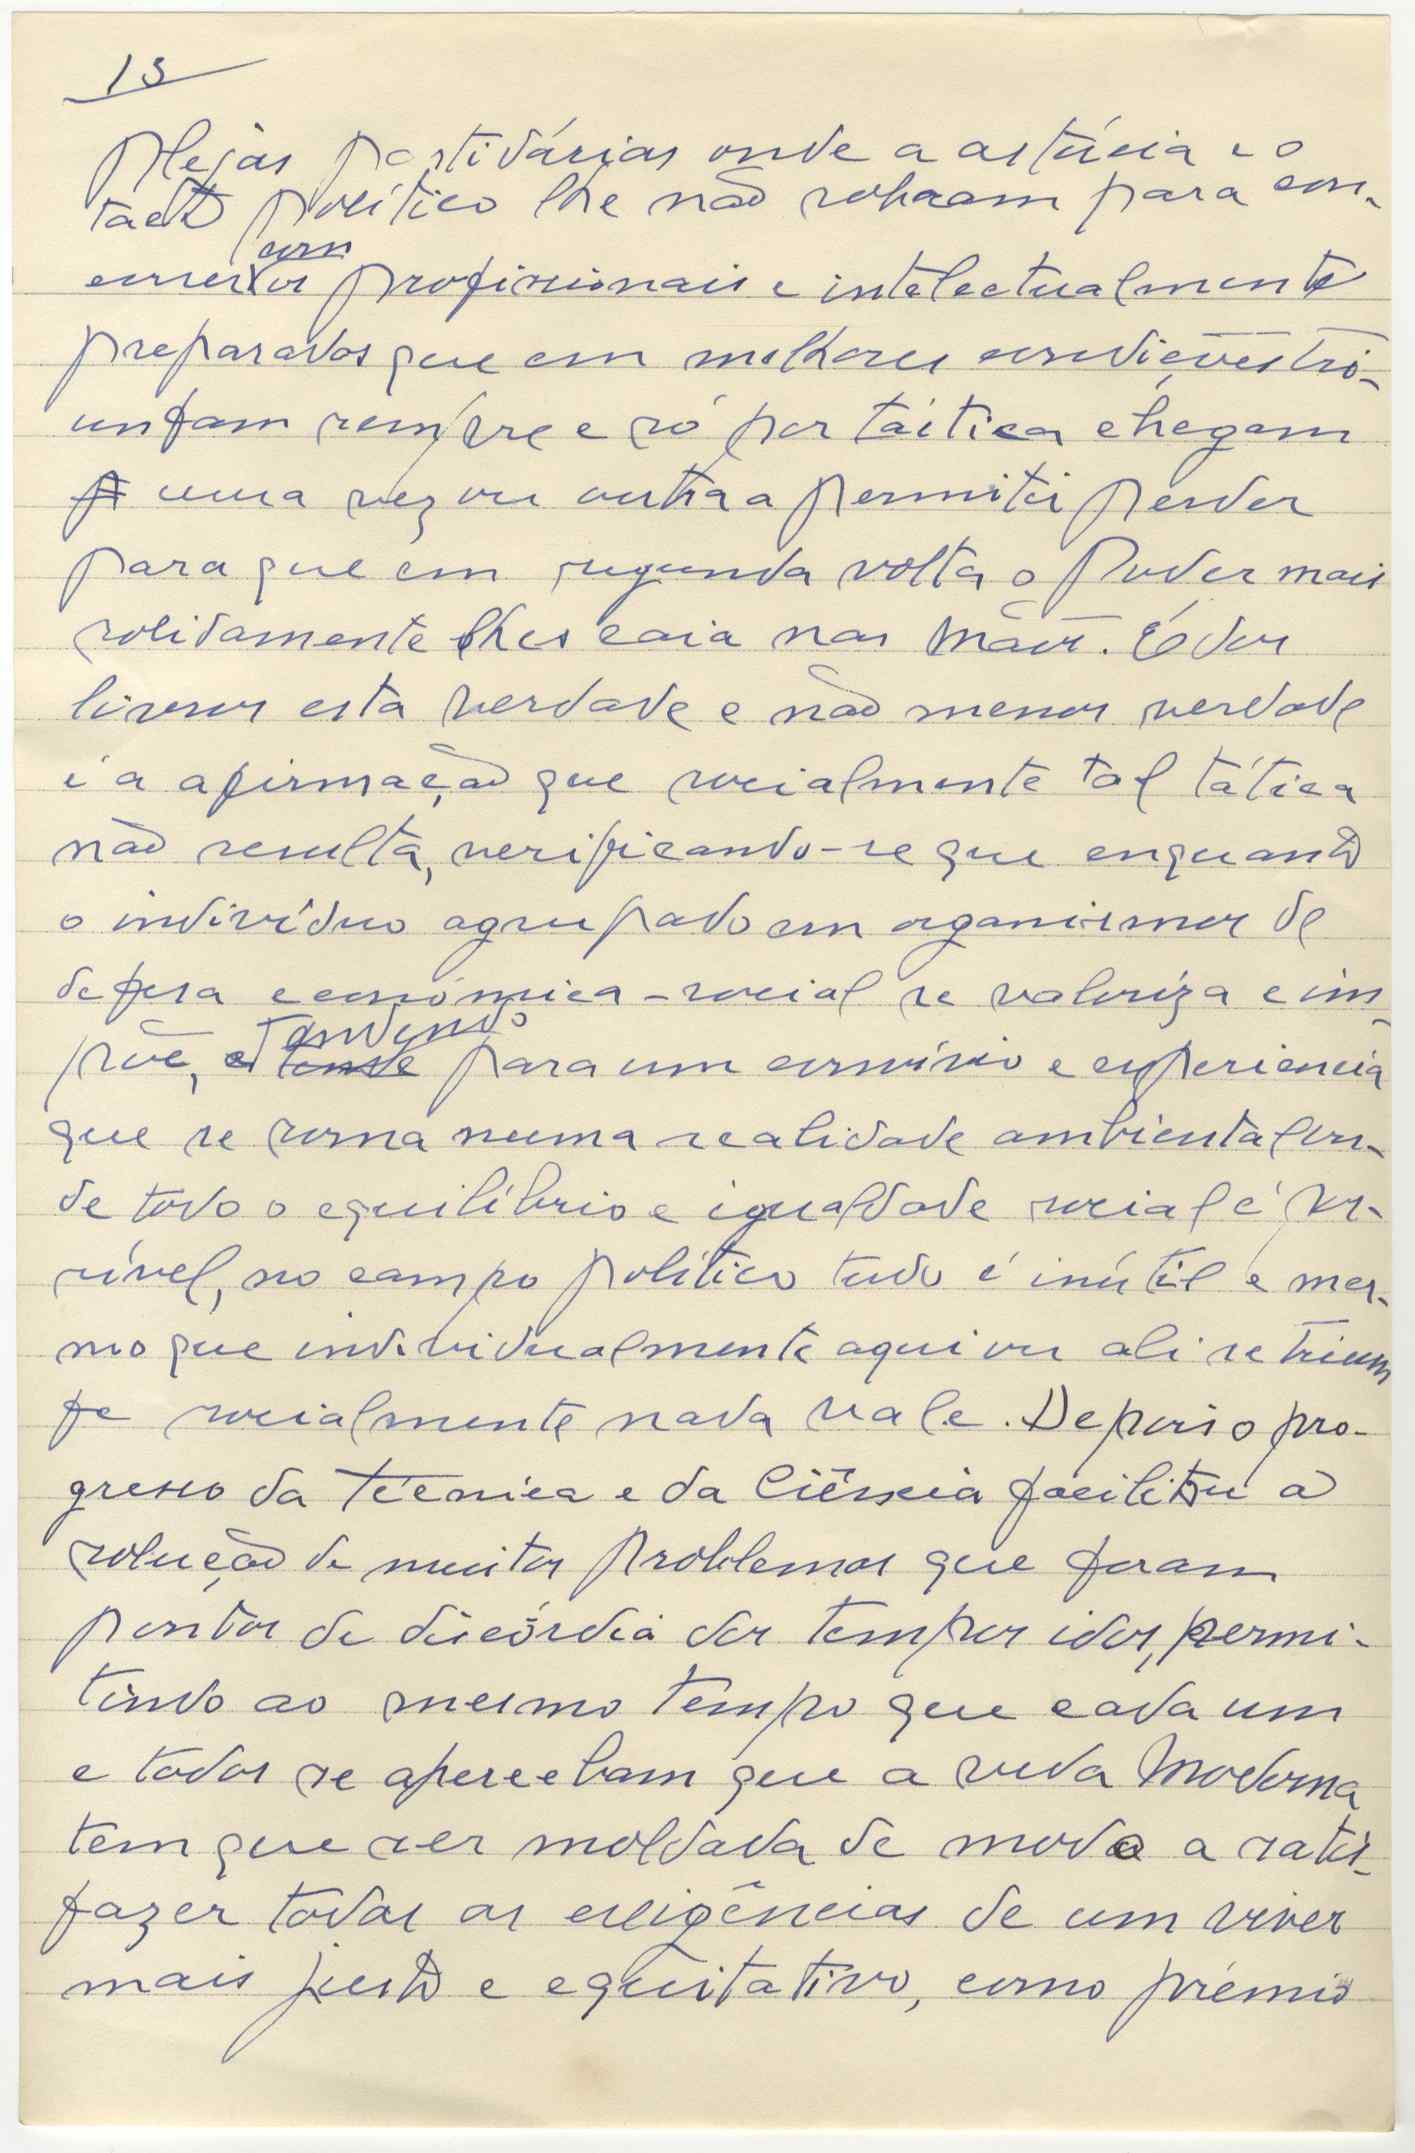 13
plejas partidárias onde a astúcia e o
tacto político lhe não sobram para con-
correr com os profissionais e intelectualmente
preparados que em melhores condições tri-
unfam sempre e só por táctica chegam
uma vez ou outra a permitir perder
para que em segunda volta o Poder mais
solidamente lhes caia nas mãos. É dos
livros esta verdade e não menos verdade
é a afirmação que socialmente tal tática
não resulta, verificando-se que enquanto
o indivíduo agrupado em organismos de
defesa económica-social se valoriza e im-
põe, tendendo para um convívio e experiencia
que se torna numa realidade ambiental on-
de todo o equilíbrio e igualdade social é pos-
sível, no campo político tudo é inútil e mes-
mo que individualmente aqui ou ali se trium
fe socialmente nada vale. Depois o pro-
gresso da técnica e da Ciência facilitou a
solução de muitos problemas que foram
pontos de discórdia dos tempos idos, permi-
tindo ao mesmo tempo que cada um
e todos se apercebam que a vida Moderna
tem que ser moldada de modo a satis-
fazer todas as exigências de um viver
mais justo e equitativo, como prémio